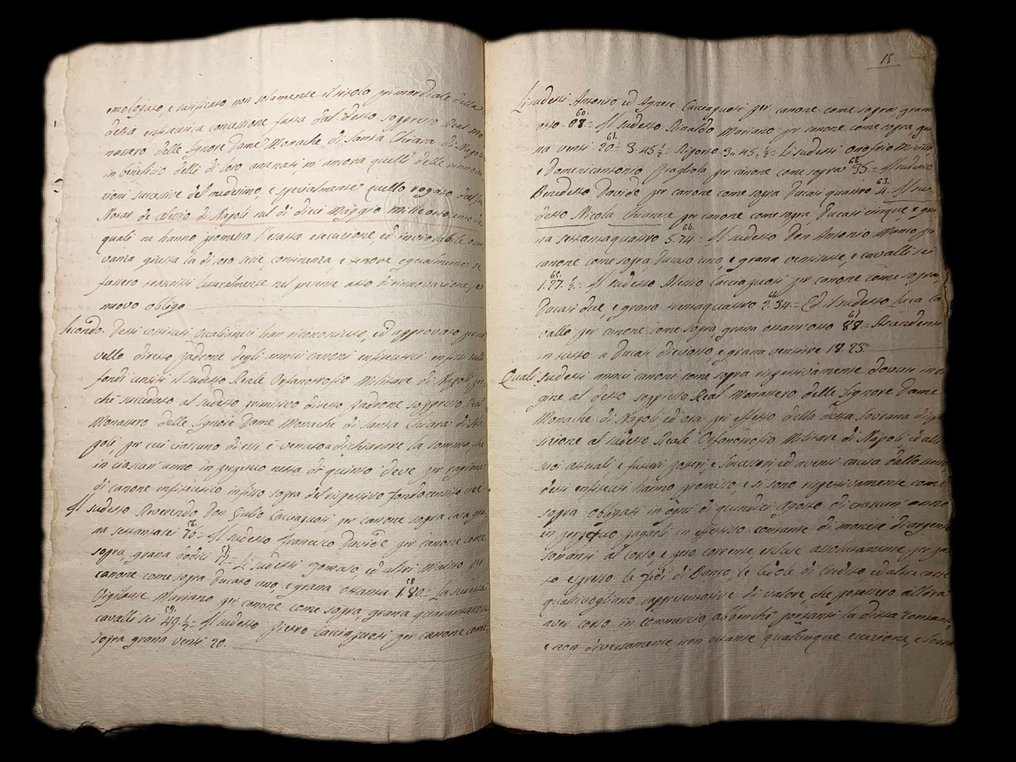 omologato, e ratificato non solamente il titolo primordiale della
detta enfiteutica concessione fatta dal detto soppresso Real Mo
nastero delle Signore Dame Monache di Santa Chiara di Napoli
in beneficio delli di loro antenati, ma ancora quelli delle
zioni successive del medesimo, e specialmente quello rogato dal
Notar de di Napoli nel dì dieci Maggio
quali ne hanno promessa l'esatta esecuzione, ed inviolabile osser
vanza giusta la di loro serie, continenza, e tenore egualmente se
fussero trascritti letteralmente nel presente atto di rinnovazione, e
nuovo obligo
Secondo. Detti costituiti qualmente han riconosciuto, ed approvato per
vello diretto padrone degli annui canoni enfiteutici infissi sulli
fondi censiti il sudetto Reale Orfanotrofio Militare di Napoli, per
chè succeduto al sudetto primitivo diretto padrone soppresso Real
Monastero delle Signore Dame Monache di Santa Chiara di Na
poli, per cui ciascuno di essi è venuto a dichiarare la somma, che
in ciascun anno in perpetuo nella di quinto deve per ragione
di canone enfiteutico infisso sopra del rispettivo fondo censito
Il sudetto Reverendo Don Giulio Cacciapuoti per canone sopra casa, gra
na settantasei 76 56. Il sudetto Francesco Davide per canone come
sopra, grana dodici 57 Li sudetti Tomaso, ed altri
canone come sopra ducato uno, e grana ottanta 1.80 58 = La sudetta
Mariano per canone come sopra, grana quarantanove
cavalli sei 49 ½ 59 = Il sudetto Pietro Cacciapuoti per canone come
sopra grana venti 20.
18
Li sudetti Antonio ed Agnese Cacciapuoti per canone come sopra, grana
otto 08 60 = Il sudetto Rinaldo Mariano per canone come sopra, gra
na venti 20 61 = 3.45 ½ = Riporto 3.45 ½ = Li sudetti Onofrio
e Domenicantonio per canone come sopra 35 62 = Il sudetto
Benedetto Davide per canone come sopra Ducati quattro 4 63 = Il su
detto Nicola Chianese per canone come sopra Ducati cinque, e gra
na settantaquattro 5.74 64 = Il sudetto Don Antonio per
canone come sopra Ducato uno, e grana ventisette, e cavalli sei
1.27 ½ 65 = Il sudetto Alesio Cacciapuoti per canone come sopra,
Ducati due, e grana trentaquattro 2.34 66 = Ed il sudetto Luca Ca
vallo per canone come sopra, grana ottantotto 88 67 = Ascendenti
in tutto a Ducati dieciotto, e grana ventitre 18.23.
Quali sudetti annui canoni come sopra rispettivamente dovuti in ori
gine al detto soppresso Real Monastero delle Signore Dame
Monache di Napoli ed ora per effetto della detta Sovrana dispo
sizione al sudetto Reale Orfanotrofio Militare di Napoli ed alli
suoi attuali e futuri poteri, e successori ed aventi causa dallo stesso,
detti enfiteuti hanno promesso, e si sono rispettivamente come
sopra obligati in ogni dì quindici Agosto di ciascun anno
in perpetuo pagarli in effettivo contante di monete di argento
sonanti al corso, e peso corrente esclusi assolutamente per pat
to espresso le fedi di Banco, le cedole di credito, ed altre carte
qualsivogliano rappresentative di valore che potessero allora
aver corso in commercio abbenchè portanti la stessa
e non diversamente non ostante qualunque eccezione, e